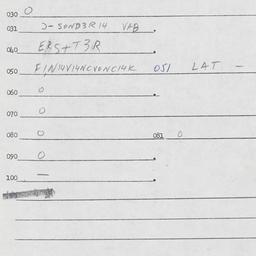 030 O
031 J-SOND3R14 VAB.
040 ERS+T3R
050 F/N14V14NCVONC14K 051 LAT -
060 O.
070 O
080 O 081 O
090 O.
100 —.